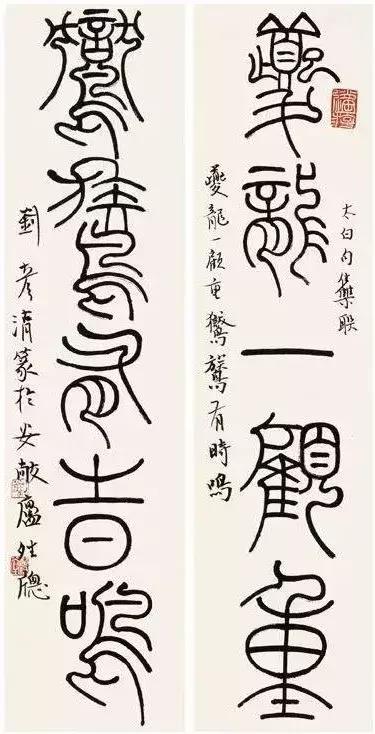 夔龍一顧重
太白句集聯
夔龍一顧重鸑鷟有時鳴
鸑鷟有時鳴
劉彥清篆於安廬牕